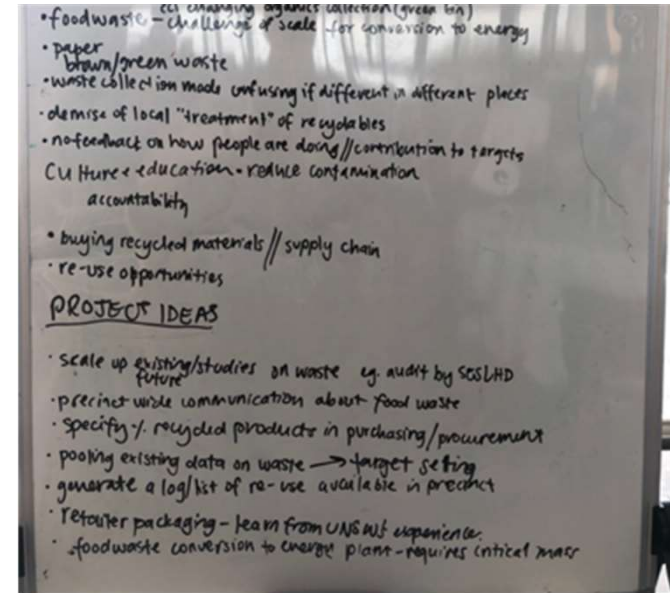 CCC changing organics collection (green bin)
• foodwaste - challenge of scale for conversion to energy
• paper
brown/green waste
• waste collection made confusing if different in different places
• demise of local "treatment" of recyclables
• no feedback on how people are doing // contribution to targets
Culture + education • reduce contamination
accountability
• buying recycled materials // supply chain
• re-use opportunities
PROJECT IDEAS
• scale up existing/studies on waste eg. audit by SESLHD
future
• precinct wide communication about food waste
• specify % recycled products in purchasing/procurement
• pooling existing data on waste → target setting
• generate a log/list of re-use available in precinct
• retailer packaging - learn from UNSW's experience.
• foodwaste conversion to energy plant - requires critical mass